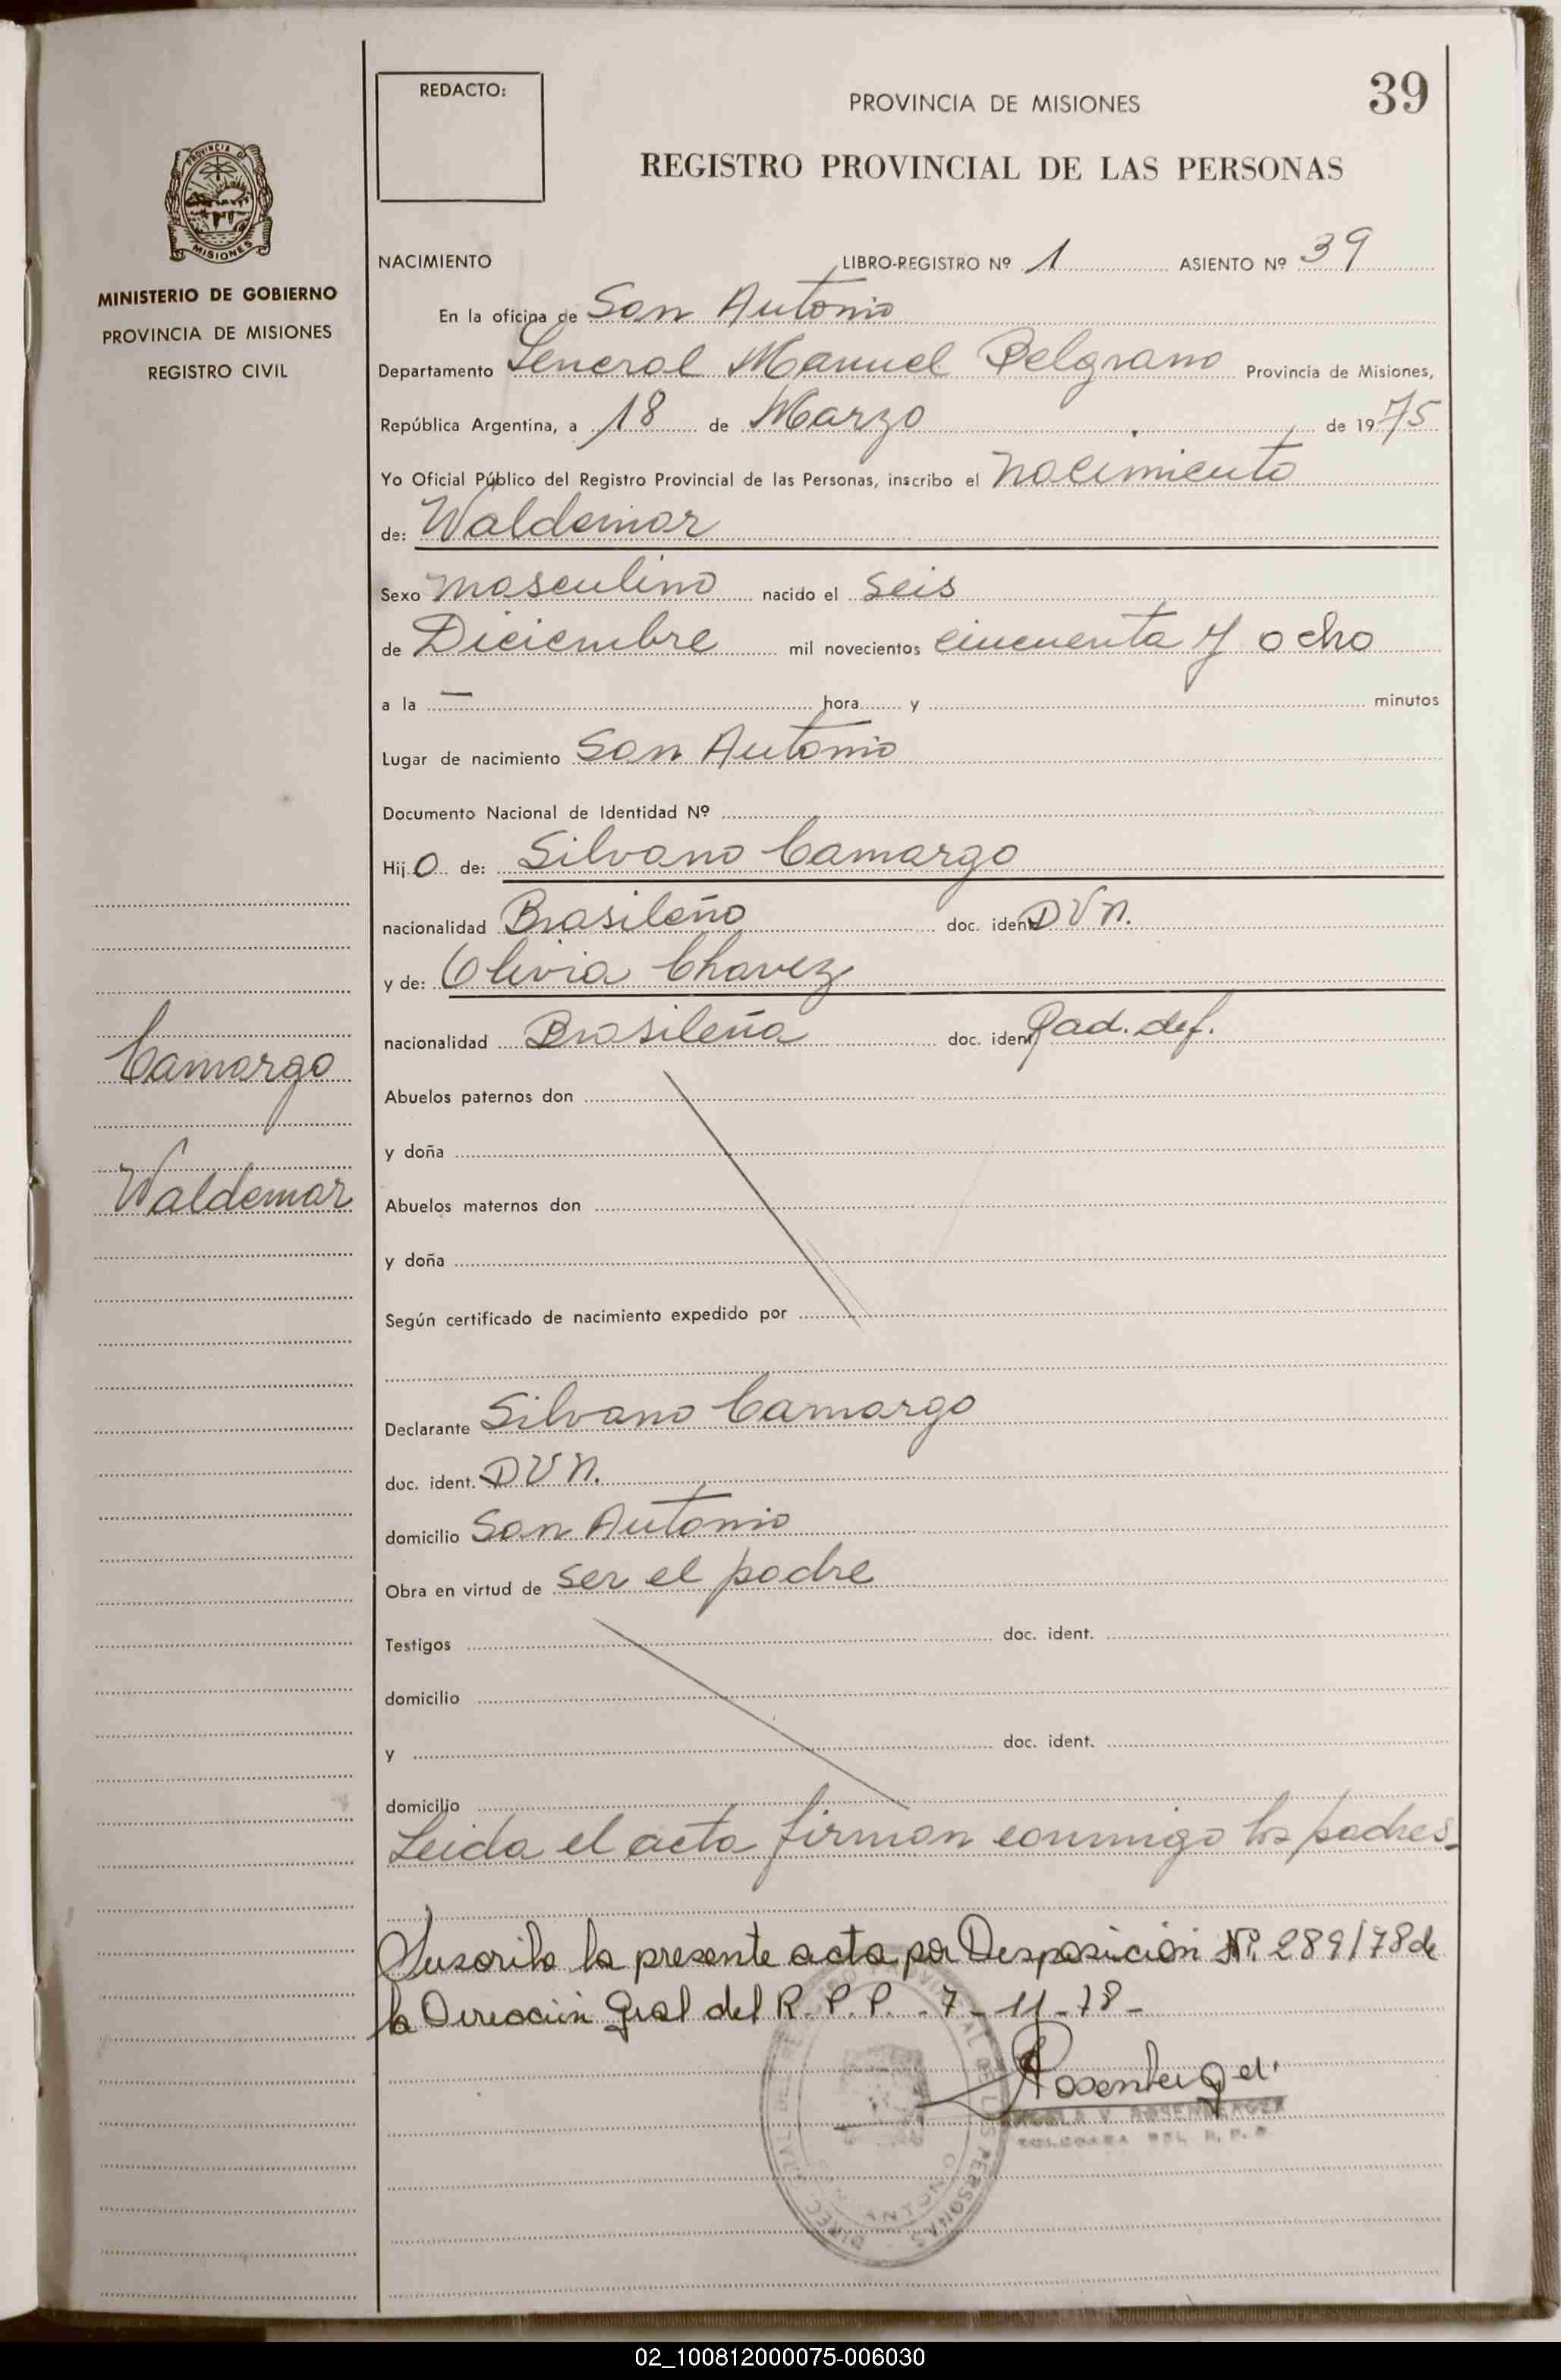 REDACTO:
PROVINCIA DE MISIONES
39
REGISTRO PROVINCIAL DE LAS PERSONAS
PROVINCIA DE
MISIONES
MINISTERIO DE GOBIERNO
PROVINCIA DE MISIONES
REGISTRO CIVIL
NACIMIENTO LIBRO-REGISTRO Nº 1 ASIENTO Nº 39
En la oficina de San Antonio
Departamento General Manuel Belgrano Provincia de Misiones,
República Argentina, a 18 de Marzo de 1975
Yo Oficial Público del Registro Provincial de las Personas, inscribo el nacimiento
de: Waldemar
Sexo masculino nacido el seis
de Diciembre mil novecientos cincuenta y ocho
a la — hora y minutos
Lugar de nacimiento San Antonio
Documento Nacional de Identidad Nº
Hijo de: Silvano Camargo
nacionalidad Brasileño doc. ident D V N.
y de: Olivia Chavez
nacionalidad Brasileña doc. ident Rad. def.
Camargo
Waldemar
Abuelos paternos don
y doña
Abuelos maternos don
y doña
Según certificado de nacimiento expedido por
Declarante Silvano Camargo
doc. ident. D V N.
domicilio San Antonio
Obra en virtud de ser el padre
Testigos doc. ident.
domicilio
y doc. ident.
domicilio
Leida el acta firman conmigo los padres-
Suscrito la presente acta por Desposición Nº 289/78 de
la Dirección Gral del R.P.P. -7-11-78-
Rosenberger
ROSENBERGER
DELEGADA DEL R. P. P.
02_100812000075-006030